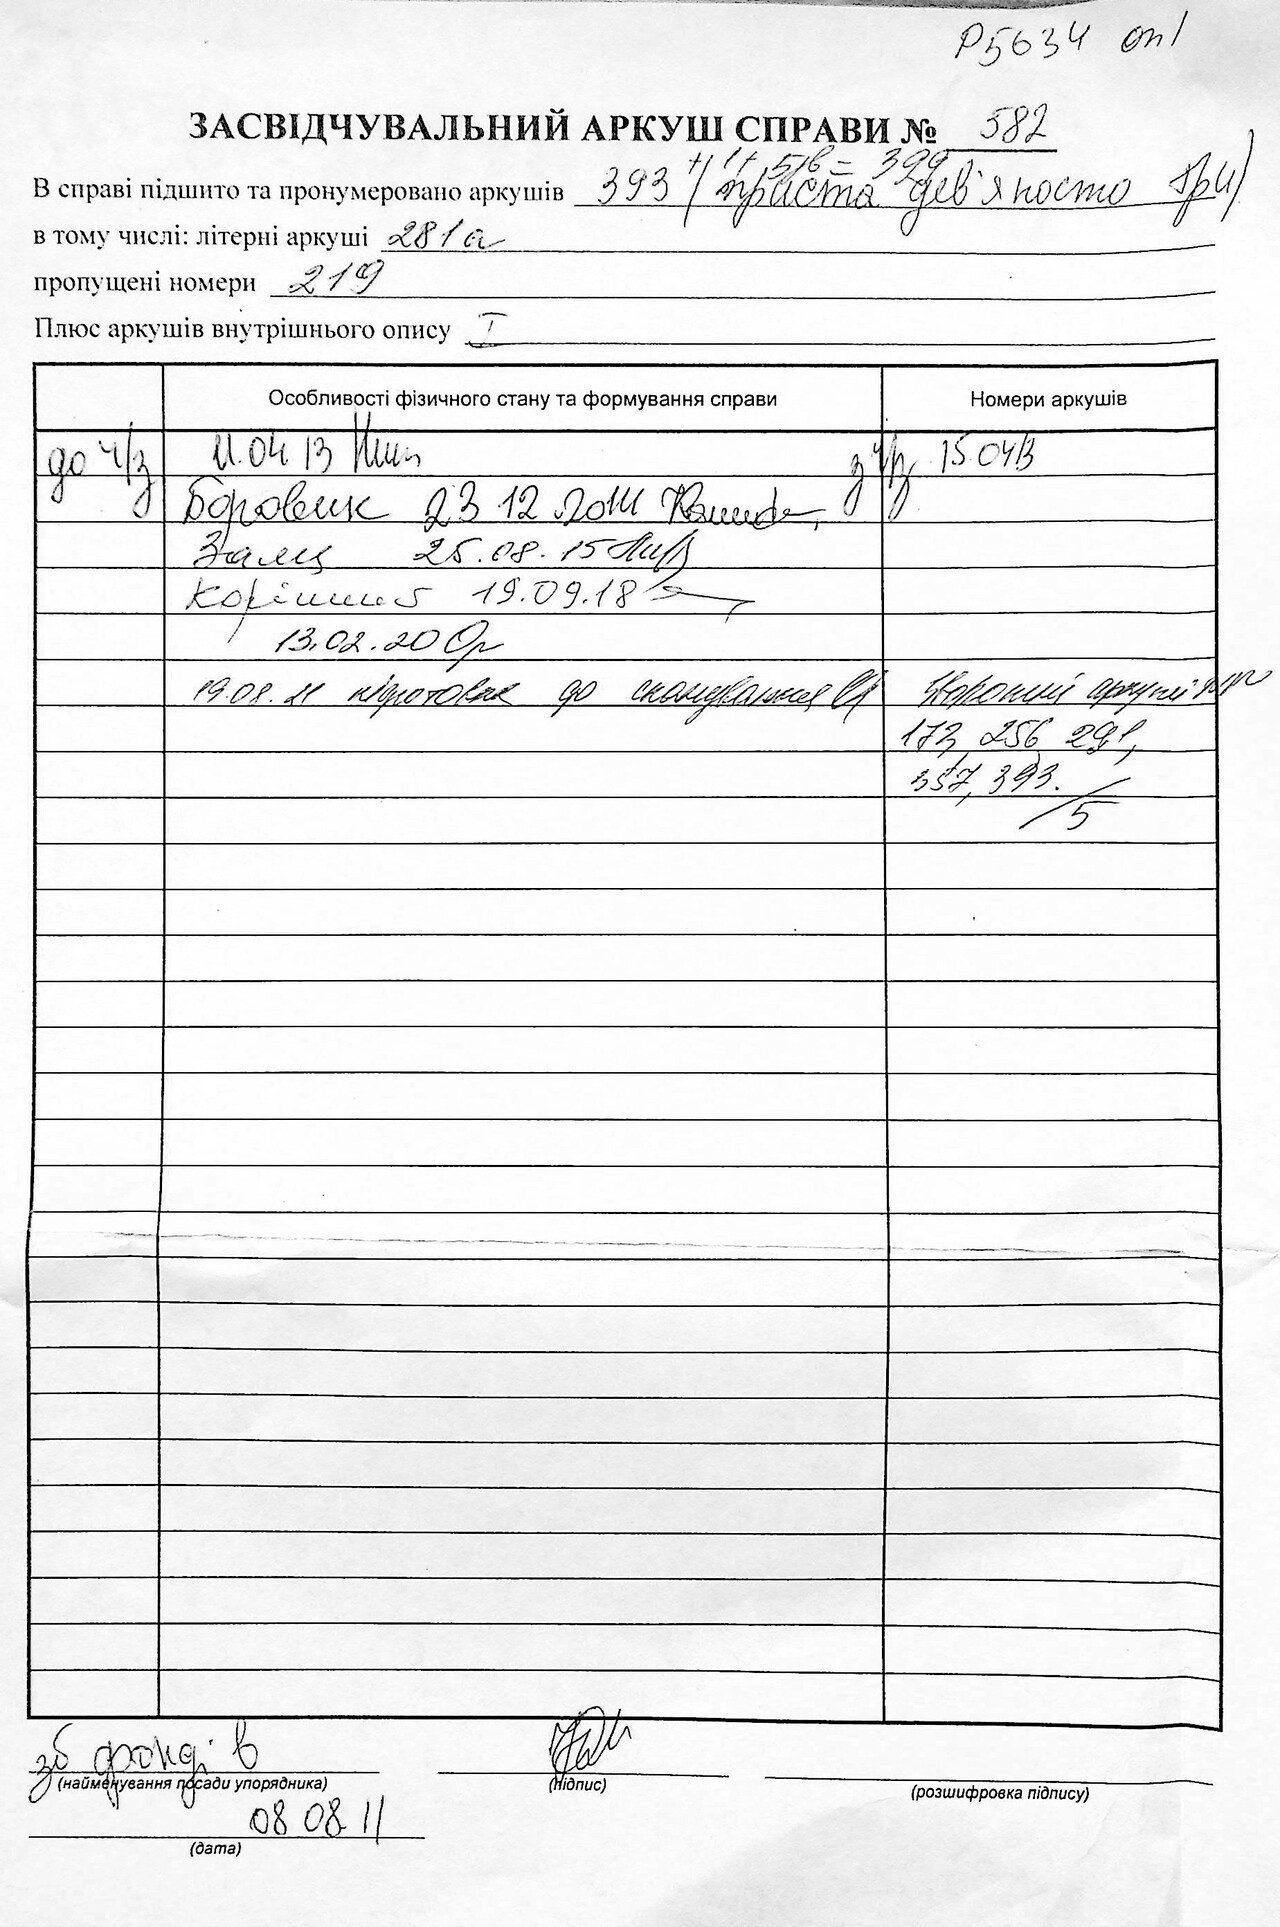 Р5634 оп1
ЗАСВІДЧУВАЛЬНИЙ АРКУШ СПРАВИ № 582
+1+5 ів = 399
В справі підшито та пронумеровано аркушів 393 (триста дев'яносто три)
в тому числі: літерні аркуші 281а
пропущені номери 219
Плюс аркушів внутрішнього опису I
Особливості фізичного стану та формування справи Номери аркушів
до ч/з 11.04 13 з ч/з 15.04 13
Боровик 23 12 2014
Заяц 25.08.15
19.09.18
13.02.20
19.08.21 підготовка до сканування
172, 256, 291,
357, 393.
/5
зб фондів
(найменування посади упорядника) (підпис) (розшифровка підпису)
08 08 11
(дата)